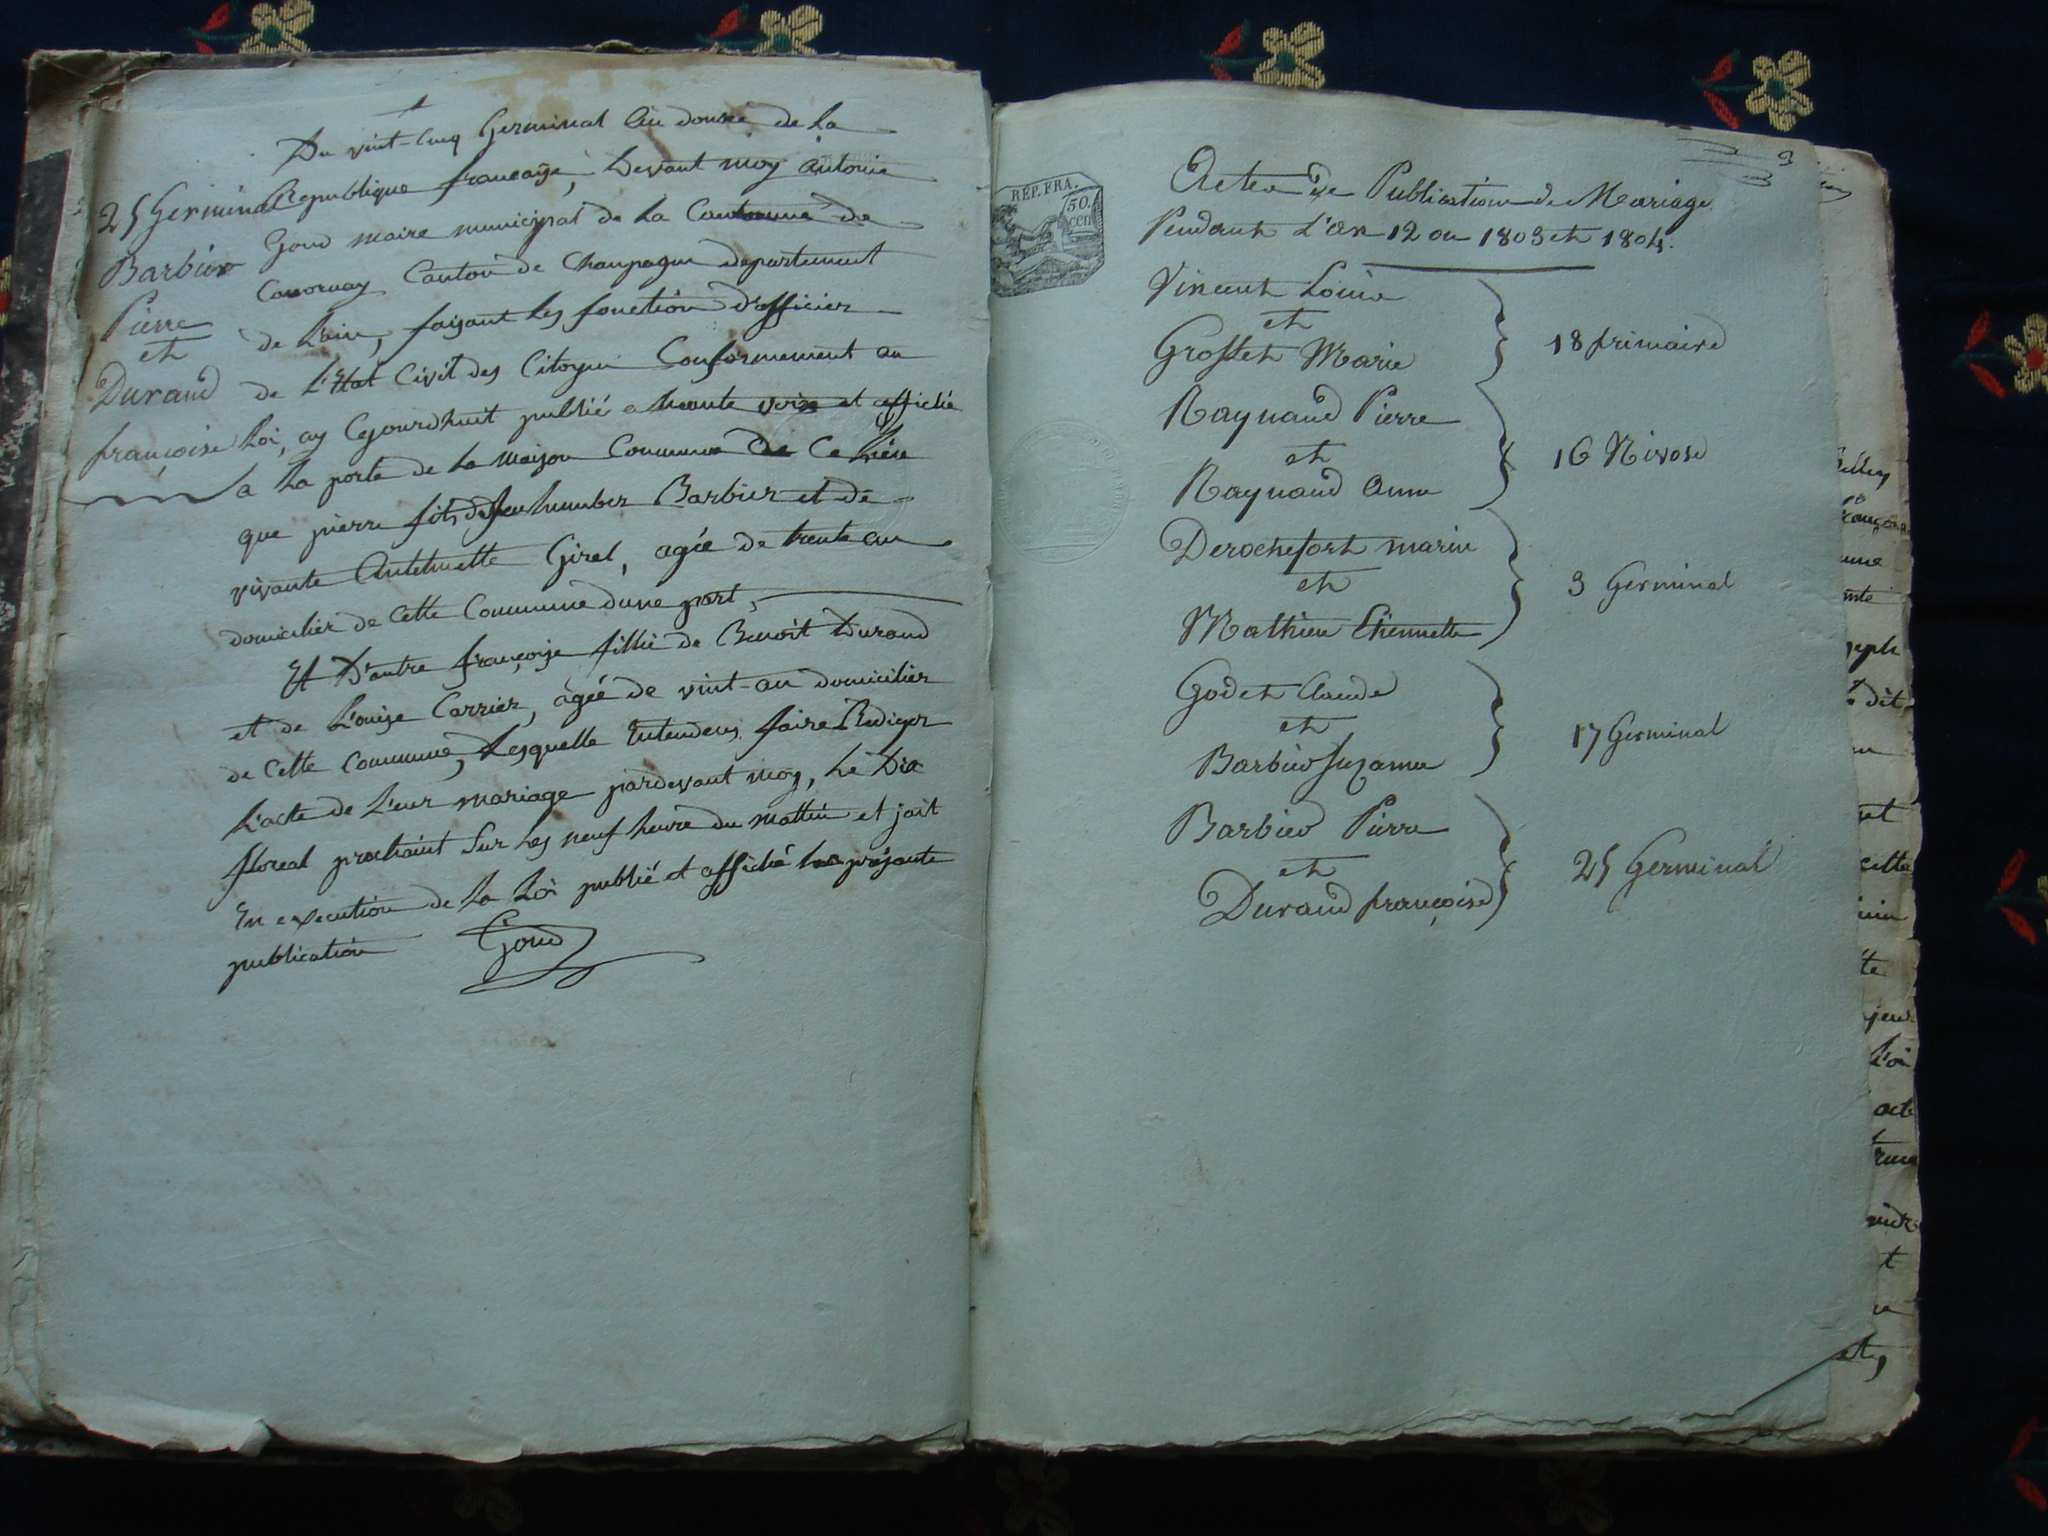 Du vint-cinq Germinal An douzé de la
Republique francaise, Devant moy antoine
Goud maire municipal de la Commune de
Canton de Champagne departement
de L'ain, faisant les fonction d'officier
de L'Etat Civil des Citoyen Conformement au
Loi, ay Cejourdhuit publié a haute voix et affiché
a la porte de la maison Commune de Ce lieu
que pierre fils de feu humber Barbier et de
vivante Antelmette Girel, agée de trente an
domicilier de Cette Commune dune part,
Et D'autre françoise fillie de Benoit Durand
et de L'ouise Carrier, agée de vint-an domicilier
de Cette Commune, Lesquelle Entendens faire Rediger
L'acte de L'eur mariage pardevant moy, Le Dix
floreal prochaint Sur les neuf heure du mattin et jait
En execution de la Loi publié et affiché la présante
publication Goud
25 Germinal
Barbier
Pierre
et
Durand
françoise
3
REP. FRA.
50.
cen
Actes de Publication de Mariage
Pendant L'an 12 ou 1803 et 1804.
Vincent Louise
et
Grosset Marie
18 frimaire
Raynaud Pierre
et
Raynaud Anne
16 Nivose
Derochefort marin
et
Mathieu Etiennette
3 Germinal
Godet Claude
et
Barbier Suzanne
17 Germinal
Barbier Pierre
et
Durand françoise
25 Germinal